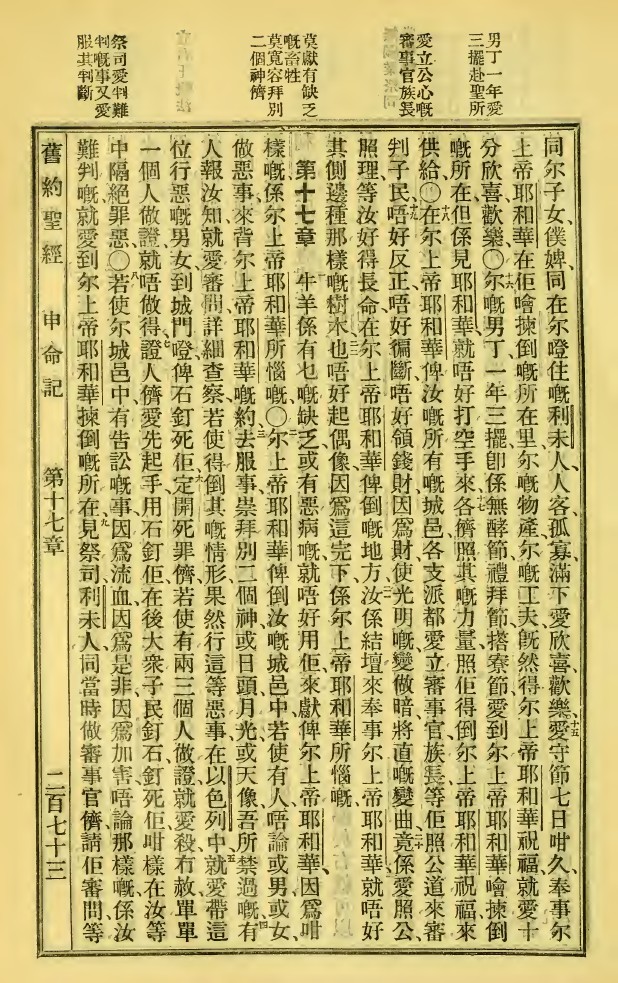 男丁一年愛
三擺赴聖所
愛立公心嘅
審事官族長
莫獻有缺乏
嘅畜牲
莫寬容拜別
二個神儕
祭司愛判難
判嘅事又愛
服其判斷
同尔子女、僕婢、同在尔嶝住嘅利未人、人客孤寡、滿下愛欣喜歡樂、十五愛守節七日咁久、奉事尔
上帝耶和華在佢噲揀倒嘅所在里、尔嘅物產、尔嘅工夫、旣然得尔上帝耶和華祝福、就愛十
分欣喜歡樂、〇十六尔嘅男丁一年三擺、卽係無酵節、禮拜節、搭寮節、愛到尔上帝耶和華噲揀倒
嘅所在、但係見耶和華、就唔好打空手來、十七各儕照其嘅力量、照佢得倒尔上帝耶和華祝福來
供給、〇十八在尔上帝耶和華俾汝嘅所有嘅城邑、各支派都愛立審事官族長等、佢照公道來審
判子民、十九唔好反正、唔好徧斷、唔好領錢財、因爲財使光明嘅變做暗、將直嘅變曲、二十竟係愛照公
照理、等汝好得長命、在尔上帝耶和華俾倒嘅地方、二一汝係結壇來奉事尔上帝耶和華、就唔好
其側邊種那樣嘅樹木、二二也唔好起偶像、因爲這完下係尔上帝耶和華所惱嘅、
第十七章 一牛羊係有乜嘅缺乏、或有惡病嘅、就唔好用佢來獻俾尔上帝耶和華、因爲咁
樣嘅係尔上帝耶和華所惱嘅、〇二尔上帝耶和華俾倒汝嘅城邑中、若使有人唔論或男或女、
做惡事來背尔上帝耶和華嘅約、三去服事崇拜別二個神、或日頭月光、或天像、吾所禁過嘅、四有
人報汝知、就愛審問詳細查察、若使得倒其嘅情形、果然行這等惡事在以色列中、五就愛帶這
位行惡嘅男女到城門嶝、俾石釘死佢、六定開死罪儕、若使有兩三個人做證、就愛殺冇赦、單單
一個人做證、就唔做得、七證人儕愛先起手用石釘佢、在後大衆子民釘石、釘死佢、咁樣在汝等
中隔絕罪惡、〇八若使尔城邑中有告訟嘅事、因爲流血、因爲是非、因爲加害、唔論那樣嘅、係汝
難判嘅、就愛到尔上帝耶和華揀倒嘅所在、九見祭司利未人、同當時做審事官儕、請佢審問、等
舊約聖經 申命記 第十七章 二百七十三